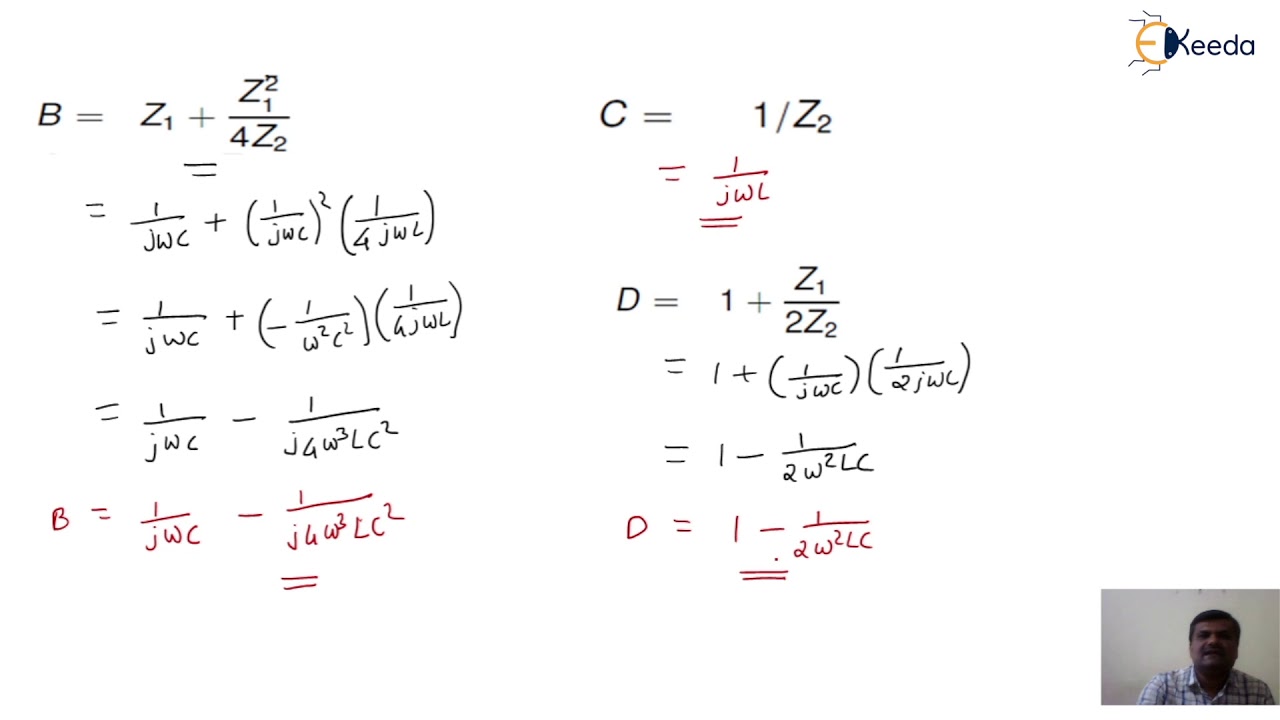 EKeeda
B = Z₁ + Z₁²/4Z₂
= 1/jωC + (1/jωC)² (1/4jωL)
= 1/jωC + (- 1/ω²C²) (1/4jωL)
= 1/jωC - 1/j4ω³LC²
B = 1/jωC - 1/j4ω³LC²
C = 1/Z₂
= 1/jωL
D = 1 + Z₁/2Z₂
= 1 + (1/jωC) (1/2jωC)
= 1 - 1/2ω²LC
D = 1 - 1/2ω²LC